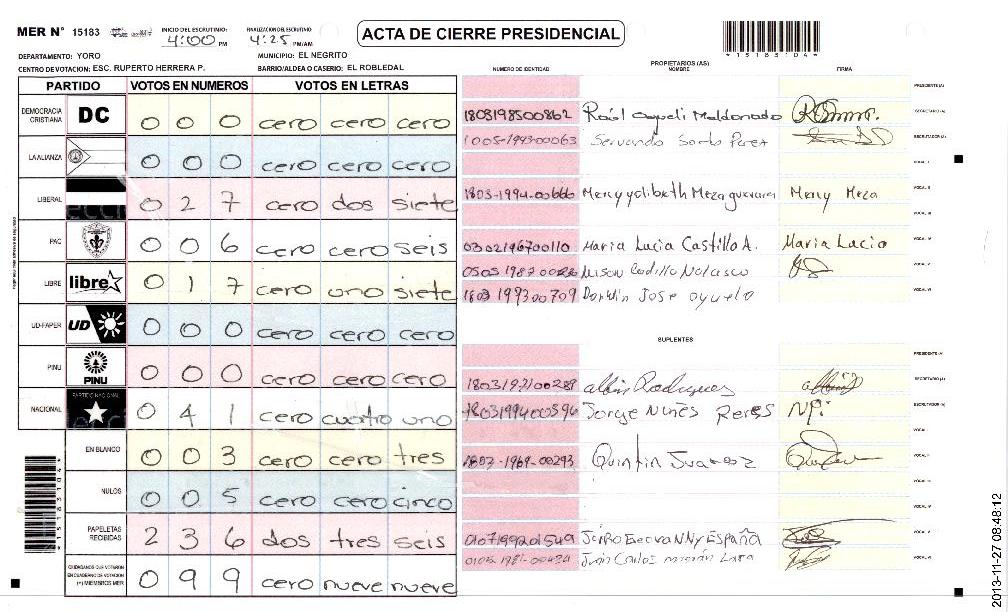 MER N° 15183 INICIO DEL ESCRUTINIO: 4:00 PM FINALIZACION DEL ESCRUTINIO 4:25 PM/AM
ACTA DE CIERRE PRESIDENCIAL
DEPARTAMENTO: YORO MUNICIPIO: EL NEGRITO
CENTRO DE VOTACION: ESC. RUPERTO HERRERA P. BARRIO/ALDEA O CASERIO: EL ROBLEDAL
PARTIDO VOTOS EN NUMEROS VOTOS EN LETRAS
DEMOCRACIA CRISTIANA DC 0 0 0 cero cero cero
LA ALIANZA 0 0 0 cero cero cero
LIBERAL 0 2 7 cero dos siete
PAC 0 0 6 cero cero seis
LIBRE libre 0 1 7 cero uno siete
UD-FAPER UD 0 0 0 cero cero cero
PINU PINU 0 0 0 cero cero cero
NACIONAL PARTIDO NACIONAL 0 4 1 cero cuatro uno
EN BLANCO 0 0 3 cero cero tres
NULOS 0 0 5 cero cero cinco
PAPELETAS RECIBIDAS 2 3 6 dos tres seis
CIUDADANOS QUE VOTARON EN CUADERNO DE VOTACION (+) MIEMBROS MER 0 9 9 cero nueve nueve
PROPIETARIOS (AS)
NUMERO DE IDENTIDAD NOMBRE FIRMA
PRESIDENTE (A)
1803198500862 Raól Maldonado SECRETARIO (A)
1005-1993-00063 Servando Santo Perez ESCRUTADOR (A)
VOCAL I
1803-1994-00666 Meza guevara Meny Meza VOCAL II
VOCAL III
0302196700110 Maria Lucia Castillo A. Maria Lucia VOCAL IV
Nolasco VOCAL V
1803 199300709 Jose VOCAL VI
SUPLENTES
PRESIDENTE (A)
1803197100288 Rodriguez SECRETARIO (A)
1803199400596 Jorge Nunès Reres ESCRUTADOR (A)
VOCAL I
1807-1969-00293 Quintin Juarez VOCAL II
VOCAL III
VOCAL IV
0107199201549 España VOCAL V
Juan Carlos Lara VOCAL VI
15183104
2013-11-27 08:48:12